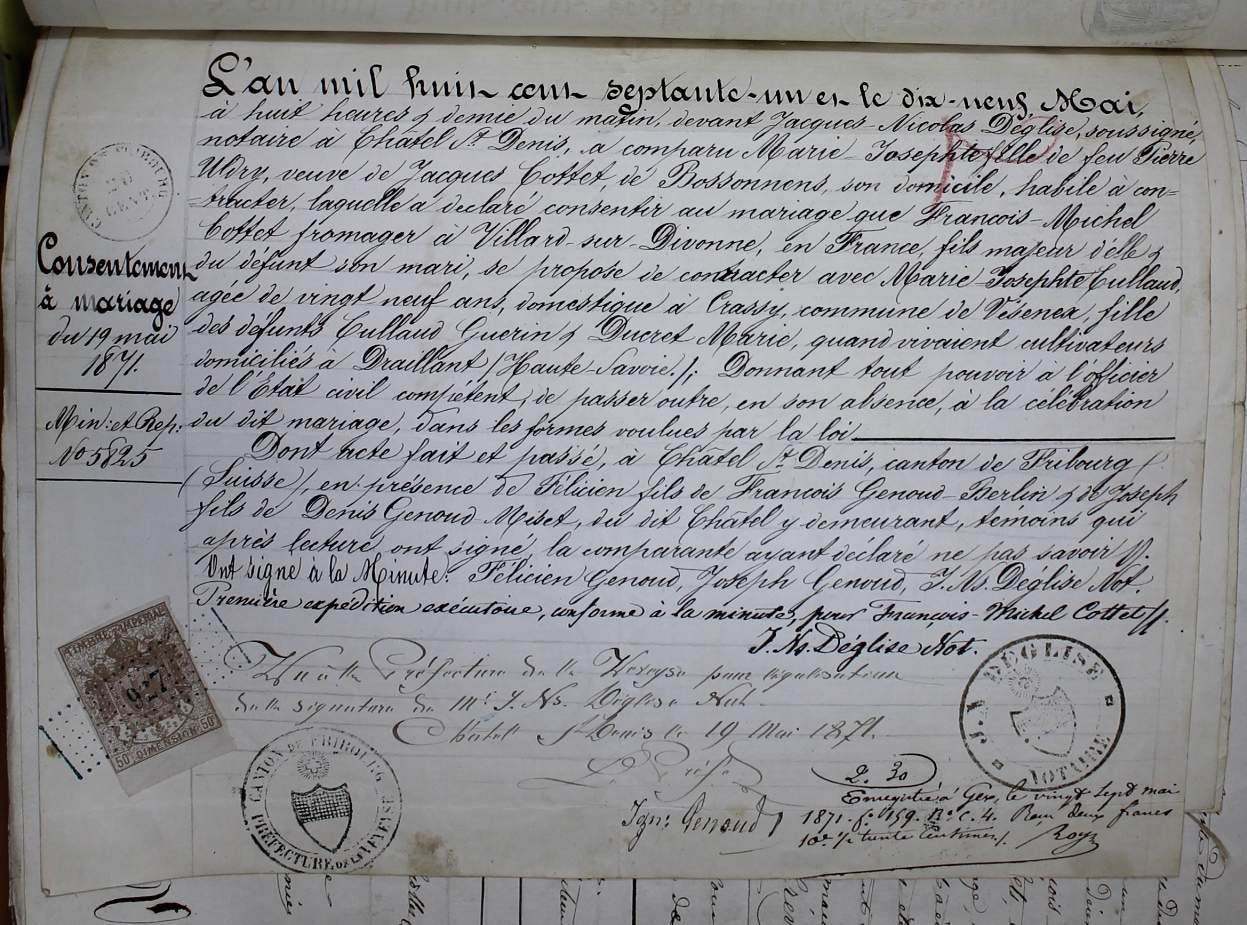 L'an mil huit cent septante-un et le dix-neuf Mai,
à huit heures & demie du matin, devant Jacques-Nicolas Déglise, soussigné,
notaire à Châtel St Denis, a comparu Marie-Josephte fille de feu Pierre
Uldry, veuve de Jacques Cottet, de Bossonnens, son domicile, habile à con=
=tracter, laquelle a déclaré consentir au mariage que François-Michel
Cottet fromager à Villard-sur-Divonne, en France, fils majeur d'elle &
du défunt son mari, se propose de contracter avec Marie-Josephte Cullaud,
agée de vingt neuf ans, domestique à Crassy, commune de Vésenex, fille
des défunts Cullaud Guerin & Ducret Marie, quand vivaient cultivateurs
domiciliés à Draillant /Haute-Savoie./; Donnant tout pouvoir à l'officier
de l'Etat civil compétent, de passer outre, en son absence, à la célébration
du dit mariage, dans les formes voulues par la loi
Dont acte fait et passé, à Châtel St Denis, canton de Fribourg
(Suisse), en présence de Félicien fils de François Genoud-Berlin & de Joseph
fils de Denis Genoud-Miset, du dit Châtel y demeurant, témoins qui
après lecture ont signé, la comparante ayant déclaré ne pas savoir
Ont signé à la Minute: Félicien Genoud, Joseph Genoud, J. Ns. Déglise Not.
Première expédition exécutoire, conforme à la minute, pour François-Michel Cottet //.
J. Ns. Déglise Not.
Consentement
à mariage
du 19 mai
1871.
Min: et Rep:
No 5825
CANTON DE FRIBOURG
20
CENT.
Vu à la Préfecture de la Veveyse pour légalisation
de la signature de Mr J. Ns. Déglise Not.
Châtel St Denis le 19 Mai 1871.
Le Préfet
Ign: Genoud
TIMBRE IMPERIAL
927
50c DIMENSION 50c
CANTON DE FRIBOURG
PRÉFECTURE DE LA VEVEYSE
J. N. DÉGLISE
NOTAIRE
2. 30
Enregistré à Gex, le vingt sept mai
1871. fo 159. Ro c. 4. Reçu deux francs
10e ½ trente centimes /.
Roy